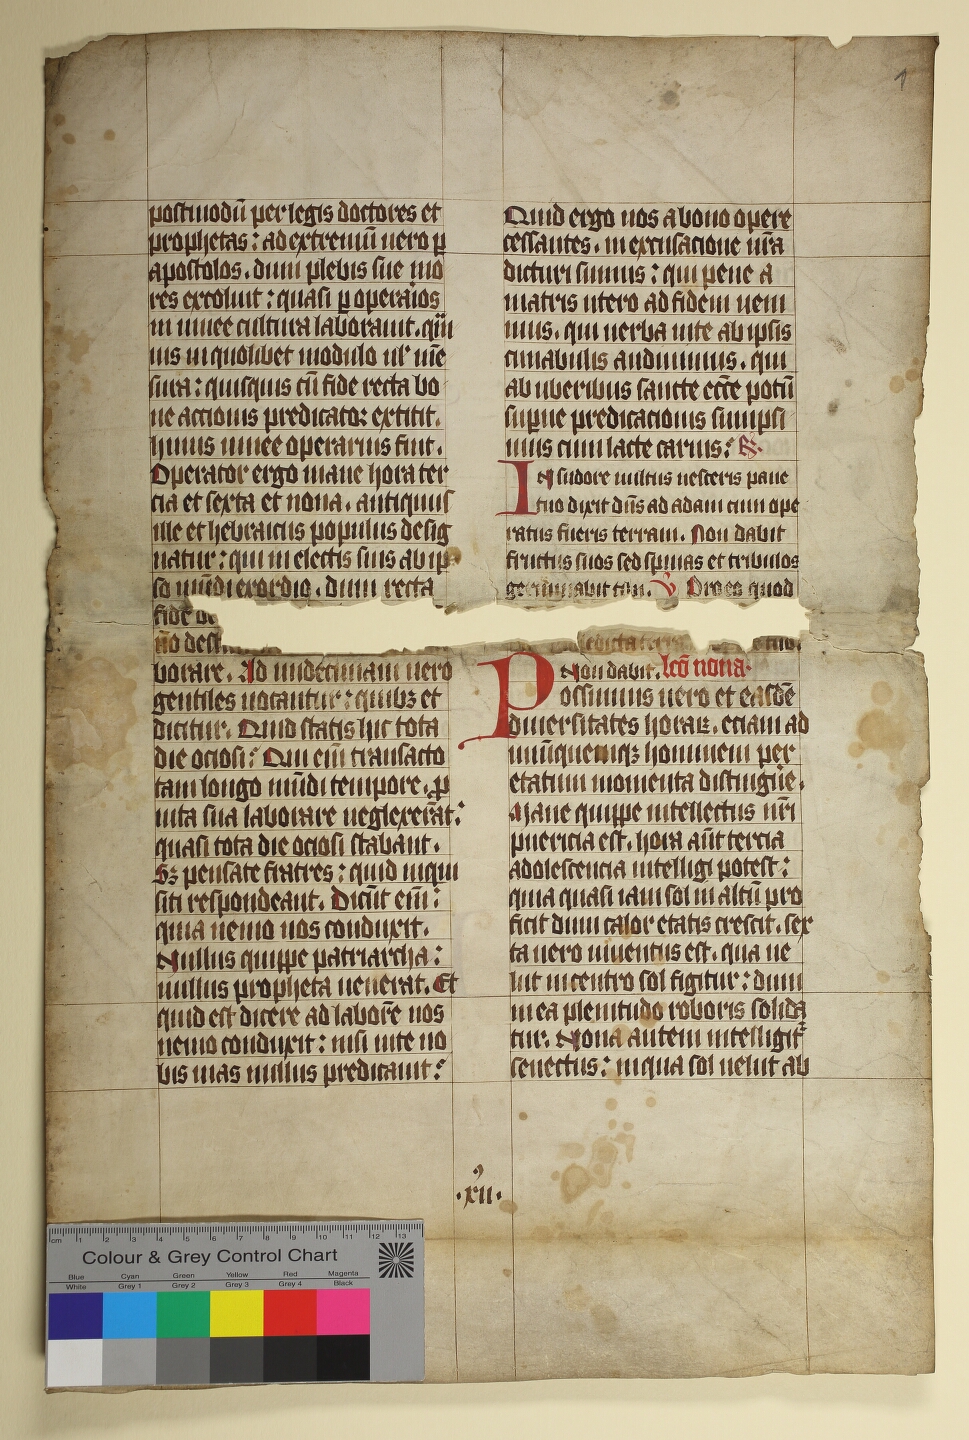 1
postmodū per legis doctores et
prophetas : ad extremū uero ꝑ
apostolos . dum plebis sue mo
res excoluit : quasi ꝑ operaios
in uinee cultura laborauit . qͣm
uis in quolibet modulo ul' mē
sura : quisquis cū fide recta bo
ne accionis predicator extitit .
huius uinee operarius fuit .
Operator ergo mane hora ter
cia et sexta et nona . antiquus
ille et hebraicus populus desig
natur : qui in electis suis ab ip
so mūdi exordio . dum recta
fide de
nō desti
borare . Ad undecimam uero
gentiles uocantur : quibꝫ et
dicitur . Quid statis hic tota
die ociosi : Qui eī transacto
tam longo mūdi tempore . ꝓ
uita sua laborare neglexerāt :
quasi tota die ociosi stabant .
Sꝫ pensate fratres : quid inqui
siti respondeant . Dicūt eī :
quia nemo nos conduxit .
Nullus quippe patriarcha :
nullus propheta uenerat . Et
quid est dicere ad laborē nos
nemo conduxit : nisi uite no
bis uias nullus predicauit :
Quid ergo nos a bono opere
cessantes . in excusacione nr̄a
dicturi sumus : qui pene a
matris utero ad fidem ueni
mus . qui uerba uite ab ipsis
cunabulis audiuimus . qui
ab uberibus sancte ecc̄e potū
supne predicacionis sumpsi
mus cum lacte carnis : R̄
IN sudore uultus uesteris pane
tuo dixit dn̄s ad adam cum ope
ratus fueris terram . Non dabit
fructus suos sed spinas et tribulos
germinabit tibi . V̄ Pro eo quod
Non dabit . lcō nona .
Possumus uero et easdē
diuersitates horaꝝ . eciam ad
unūquemqꝫ hominem per
etatum momenta distinguē .
Mane quippe intellectus nr̄i
puericia est . hora aūt tercia
adolescencia intelligi potest :
quia quasi iam sol in altū pro
ficit dum calor etatis crescit . sex
ta uero iuuentus est . qua ue
lut in centro sol figitur : dum
in ea plenitudo roboris solida
tur . Nona autem intelligit᷑
senectus : in qua sol uelut ab
. xii⁹ .
cm 1 2 3 4 5 6 7 8 9 10 11 12 13
Colour & Grey Control Chart
Blue Cyan Green Yellow Red Magenta
White Grey 1 Grey 2 Grey 3 Grey 4 Black